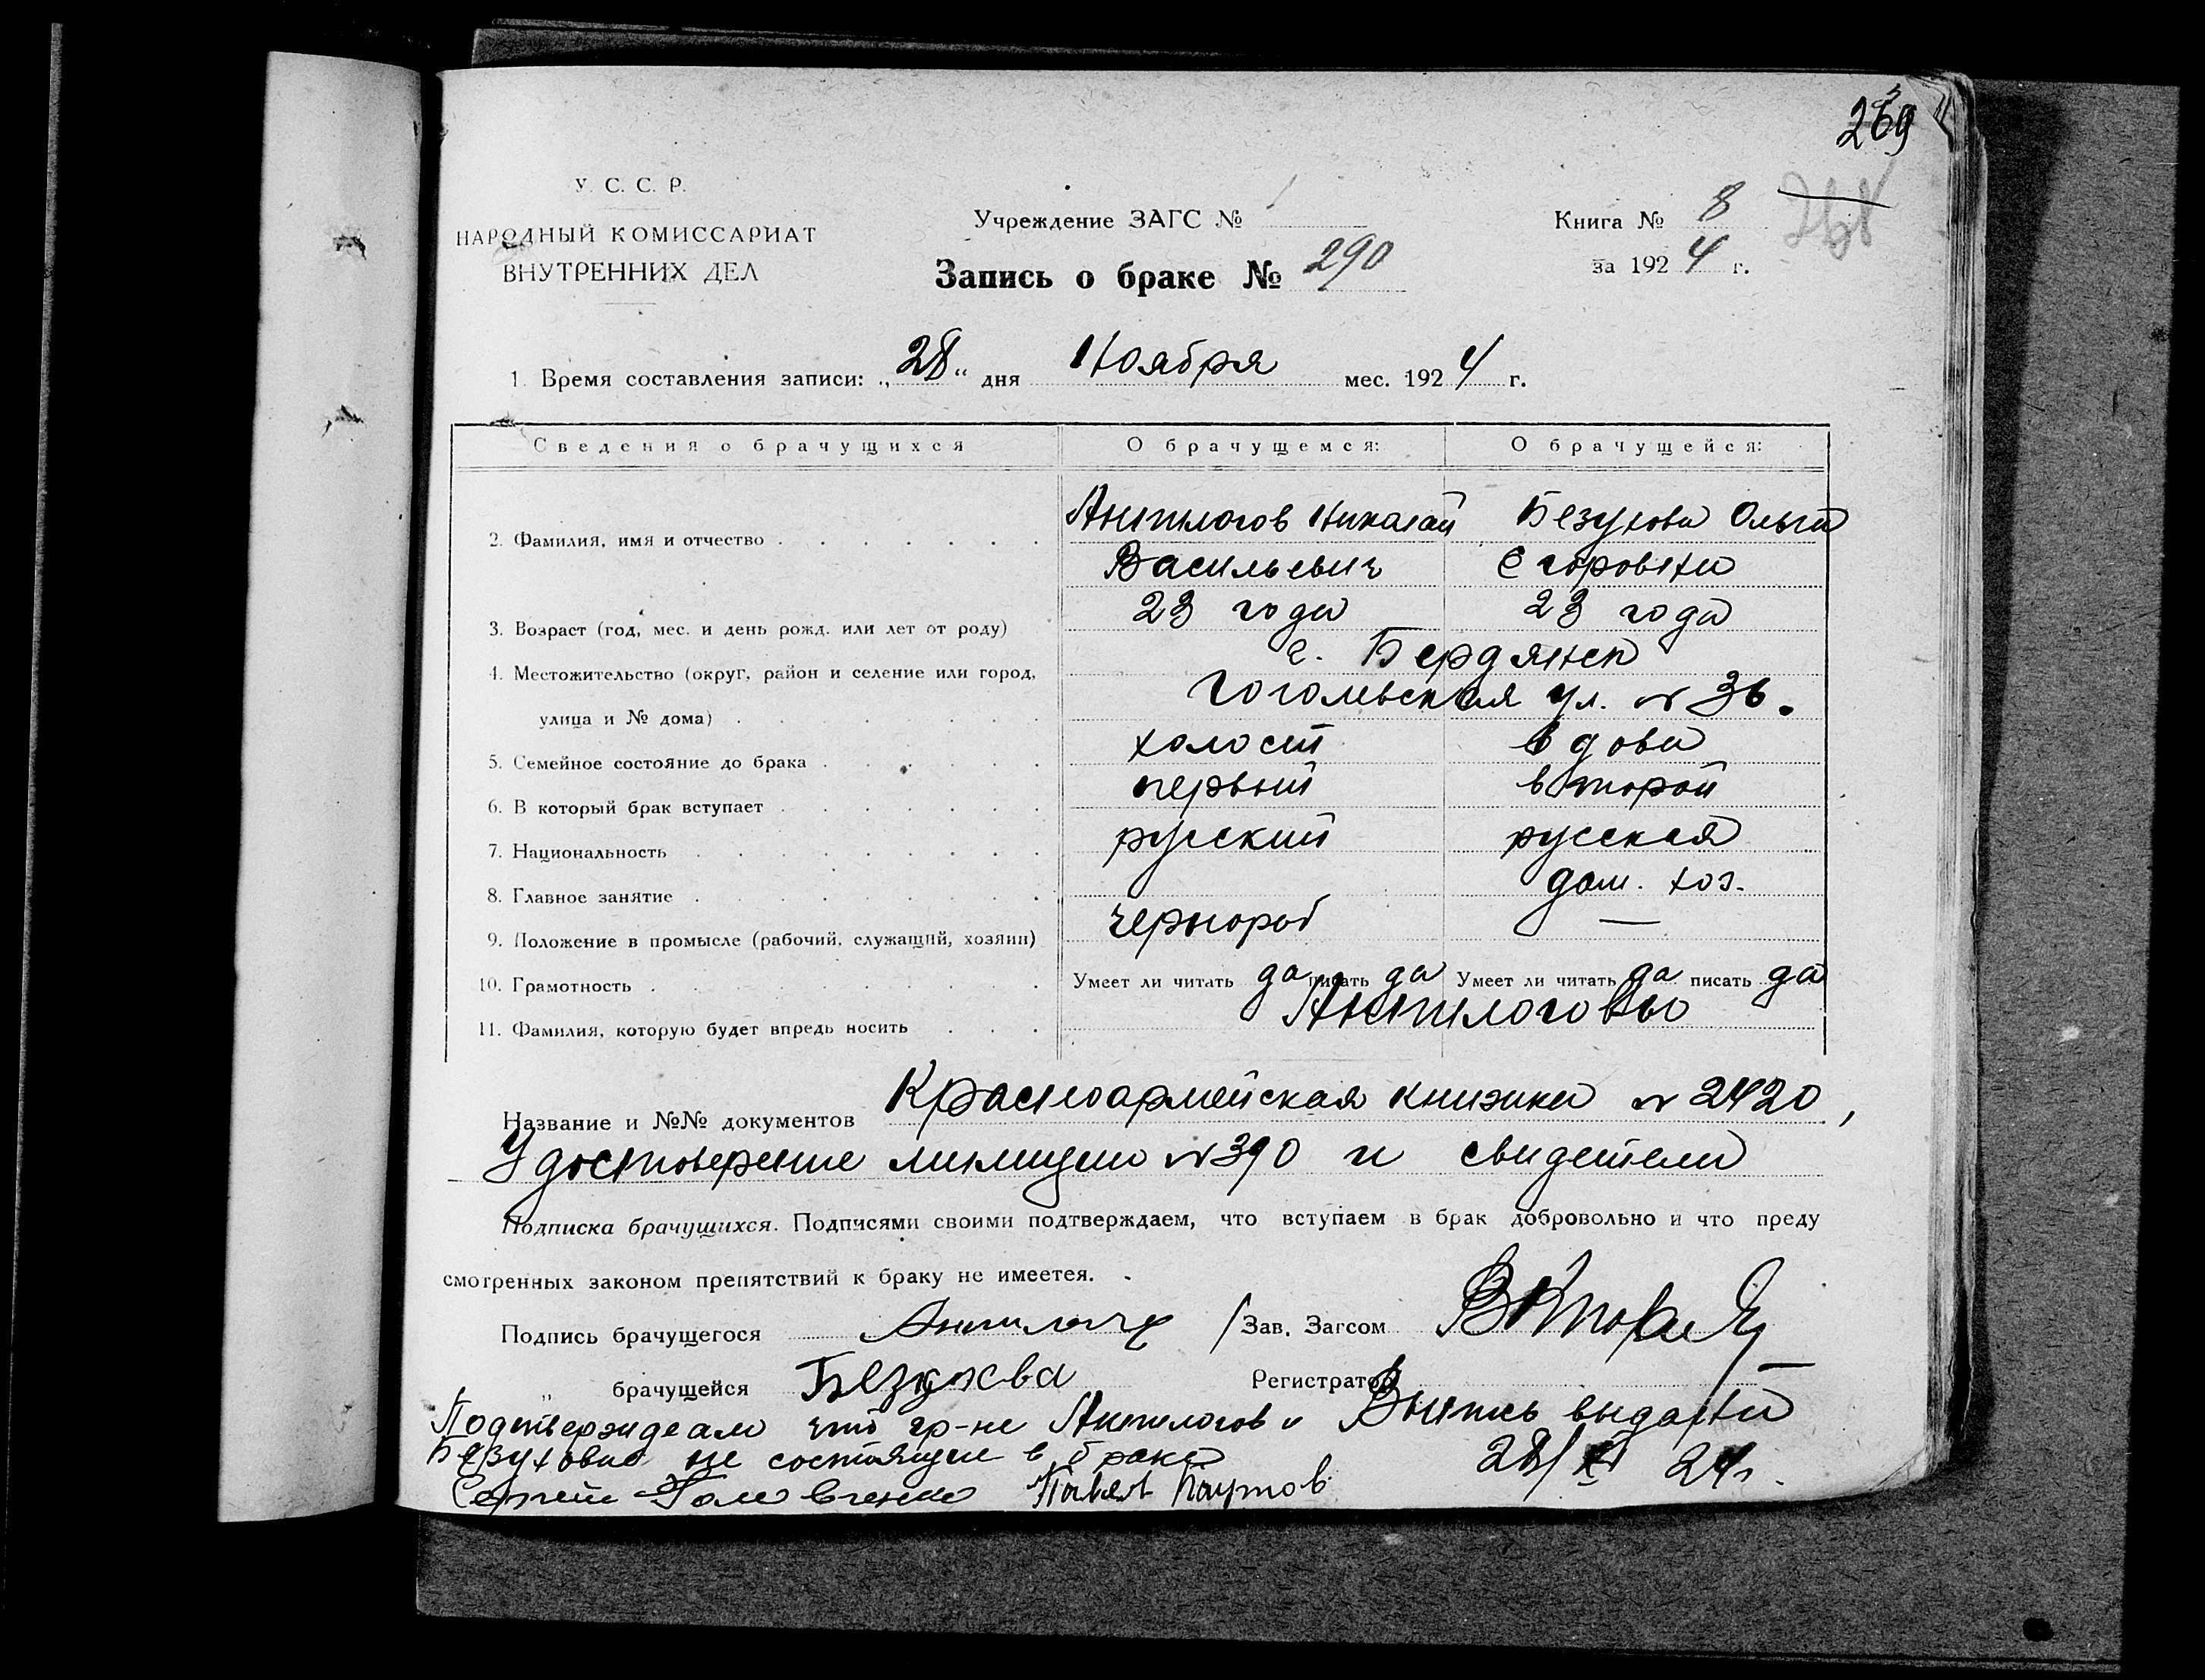 269
У. С. С. Р.
НАРОДНЫЙ КОМИССАРИАТ
ВНУТРЕННИХ ДЕЛ
Учреждение ЗАГС №
Книга № 8
Запись о браке № 290
за 1924 г.
1. Время составления записи: „28“ дня Ноября мес. 1924 г.
Сведения о брачущихся О брачущемся: О брачущейся:
2. Фамилия, имя и отчество Анпилогов Николай Безухова Ольга
Васильевич Егоровна
3. Возраст (год, мес. и день рожд. или лет от роду) 23 года 23 года
4. Местожительство (округ, район и селение или город, г. Бердянск
улица и № дома) Гоголевская ул. № 36.
5. Семейное состояние до брака холост вдова
6. В который брак вступает первый второй
7. Национальность русский русская
8. Главное занятие дом. хоз.
9. Положение в промысле (рабочий, служащий, хозяин) чернораб —
10. Грамотность Умеет ли читать да писать да Умеет ли читать да писать да
11. Фамилия, которую будет впредь носить Анпилоговы
Название и №№ документов Красноармейская книжка № 2420,
Удостоверение милиции № 390 и свидетели
Подписка брачущихся. Подписями своими подтверждаем, что вступаем в брак добровольно и что преду
смотренных законом препятствий к браку не имеется.
Подпись брачущегося Анпилогов Зав. Загсом
„ брачущейся Безухова Регистратор
Подтверждаем что гр-не Анпилогов и Выпись выдана
Безухова не состоящие в браке 28/XI 24 г.
Сергей Павел